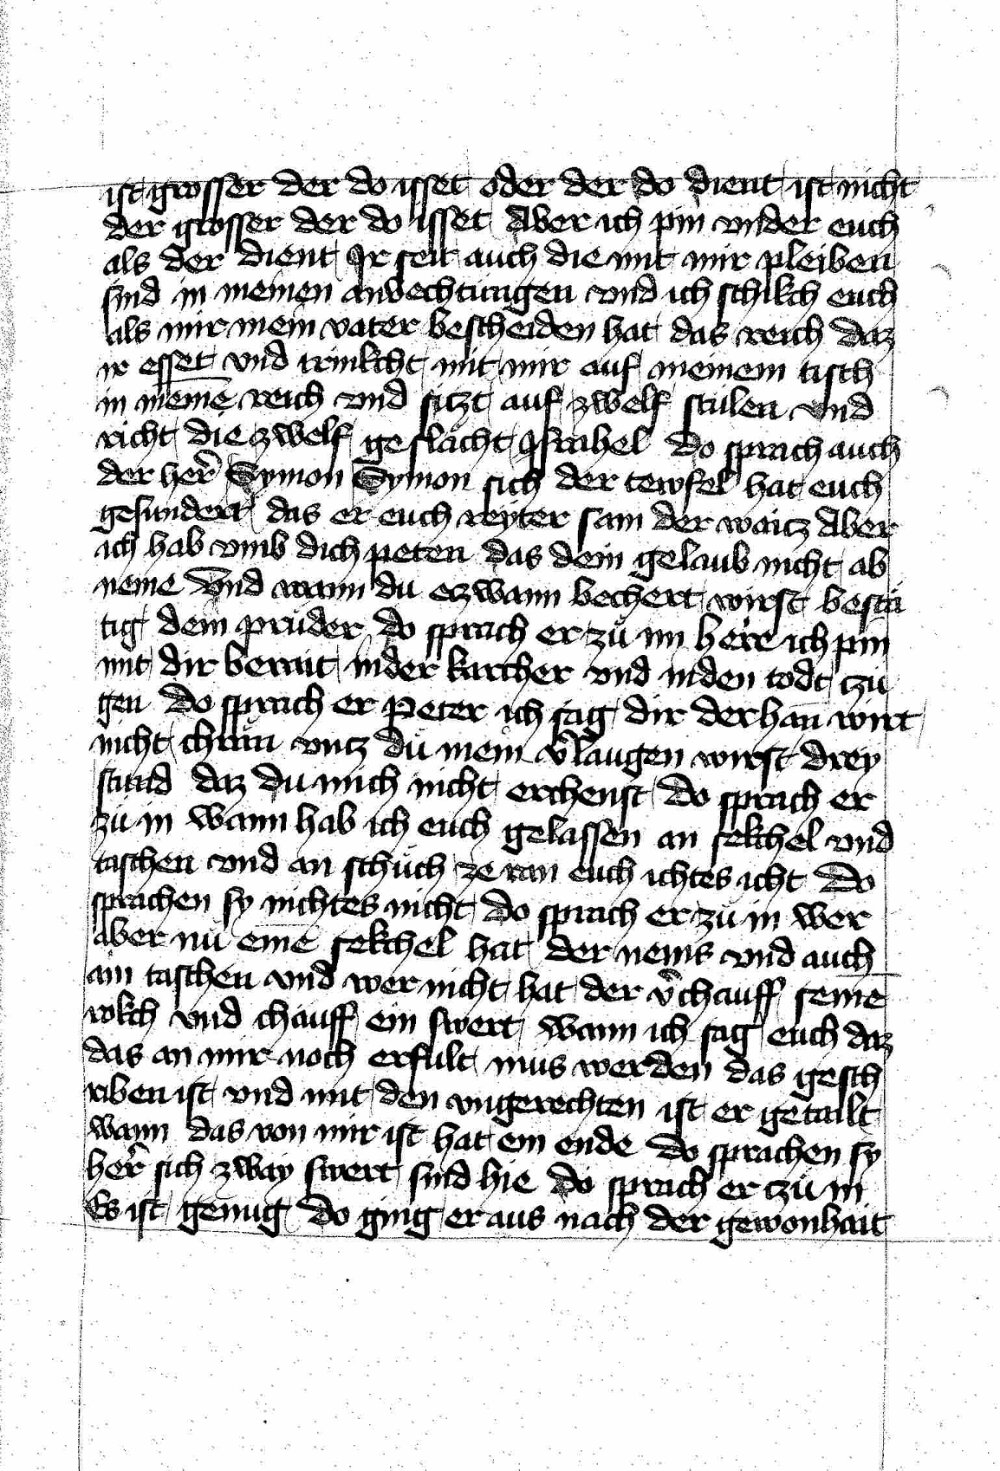 ist grosser der do isset oder der do dient ist nicht
der grosser der do isset Aber ich pin vnder euch
als der dient Ir seit auch die mit mir pleiben
sind in meinen anvechtungen vnd ich schikch euch
als mir mein vater bescheiden hat das reich daz
ir esset vnd trinkcht mit mir auf meinem tisch
in meinē reich vnd sitzt auf zwelf stülen vnd
richt die zwelf geslächt Israhel do sprach auch
der her̄ Symon Symon sich der tewfel hat euch
gesundert das er euch reyter sam der waitz Aber
ich hab vmb dich peten das dein gelaub nicht ab
neme vnd wann du etzwann bechert wirst bestä
tig dein prüder do sprach er zü im herre ich pin
mit dir berait in der karcher vnd in den todt tzü
gen do sprach er Peter ich sag dir der han wirt
nicht chrän vntz du mein v̄laugen wirst drey
stund daz du mich nicht erchenst do sprach er
zü in wann hab ich euch gelassen an sekchel vnd
taschen vnd an schüch ze ran euch ichtes icht do
sprachen sy nichtes nicht do sprach er zü in wer
aber nü einē sekchel hat der nems vnd auch
ain taschen vnd wer nicht hat der v̄chauff seinē
rokch vnd chauff ein swert wann ich sag euch daz
das an mir noch erfult mus werden das gesch
riben ist vnd mit den vngerechten ist er getailt
wann das von mir ist hat ein ende do sprachen sy
her̄ sich zway swert sind hie do sprach er tzü in
Es ist genug do ging er aus nach der gewonhait